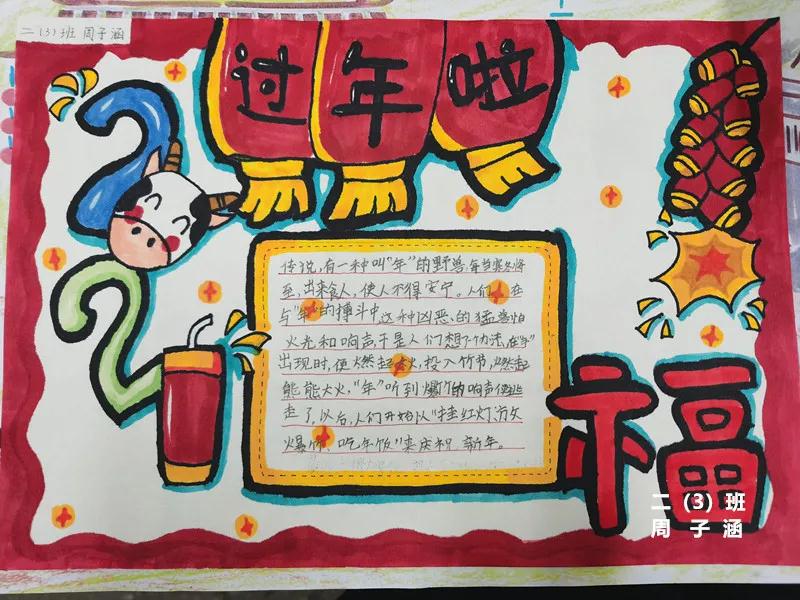 二(3)班 周子涵
过年啦
2
2
传说,有一种叫"年"的野兽每当寒冬将
至,出来食人,使人不得安宁。人们在
与"年"的搏斗中这种凶恶的猛兽怕
火光和响声于是人们想了个办法,在"年"
出现时,便燃起大火,投入竹节,燃起
熊熊大火,"年"听到爆竹的响声便逃
走了,以后,人们开始以"挂红灯,放
爆竹、吃年饭"来庆祝新年。
福
二(3)班
周子涵